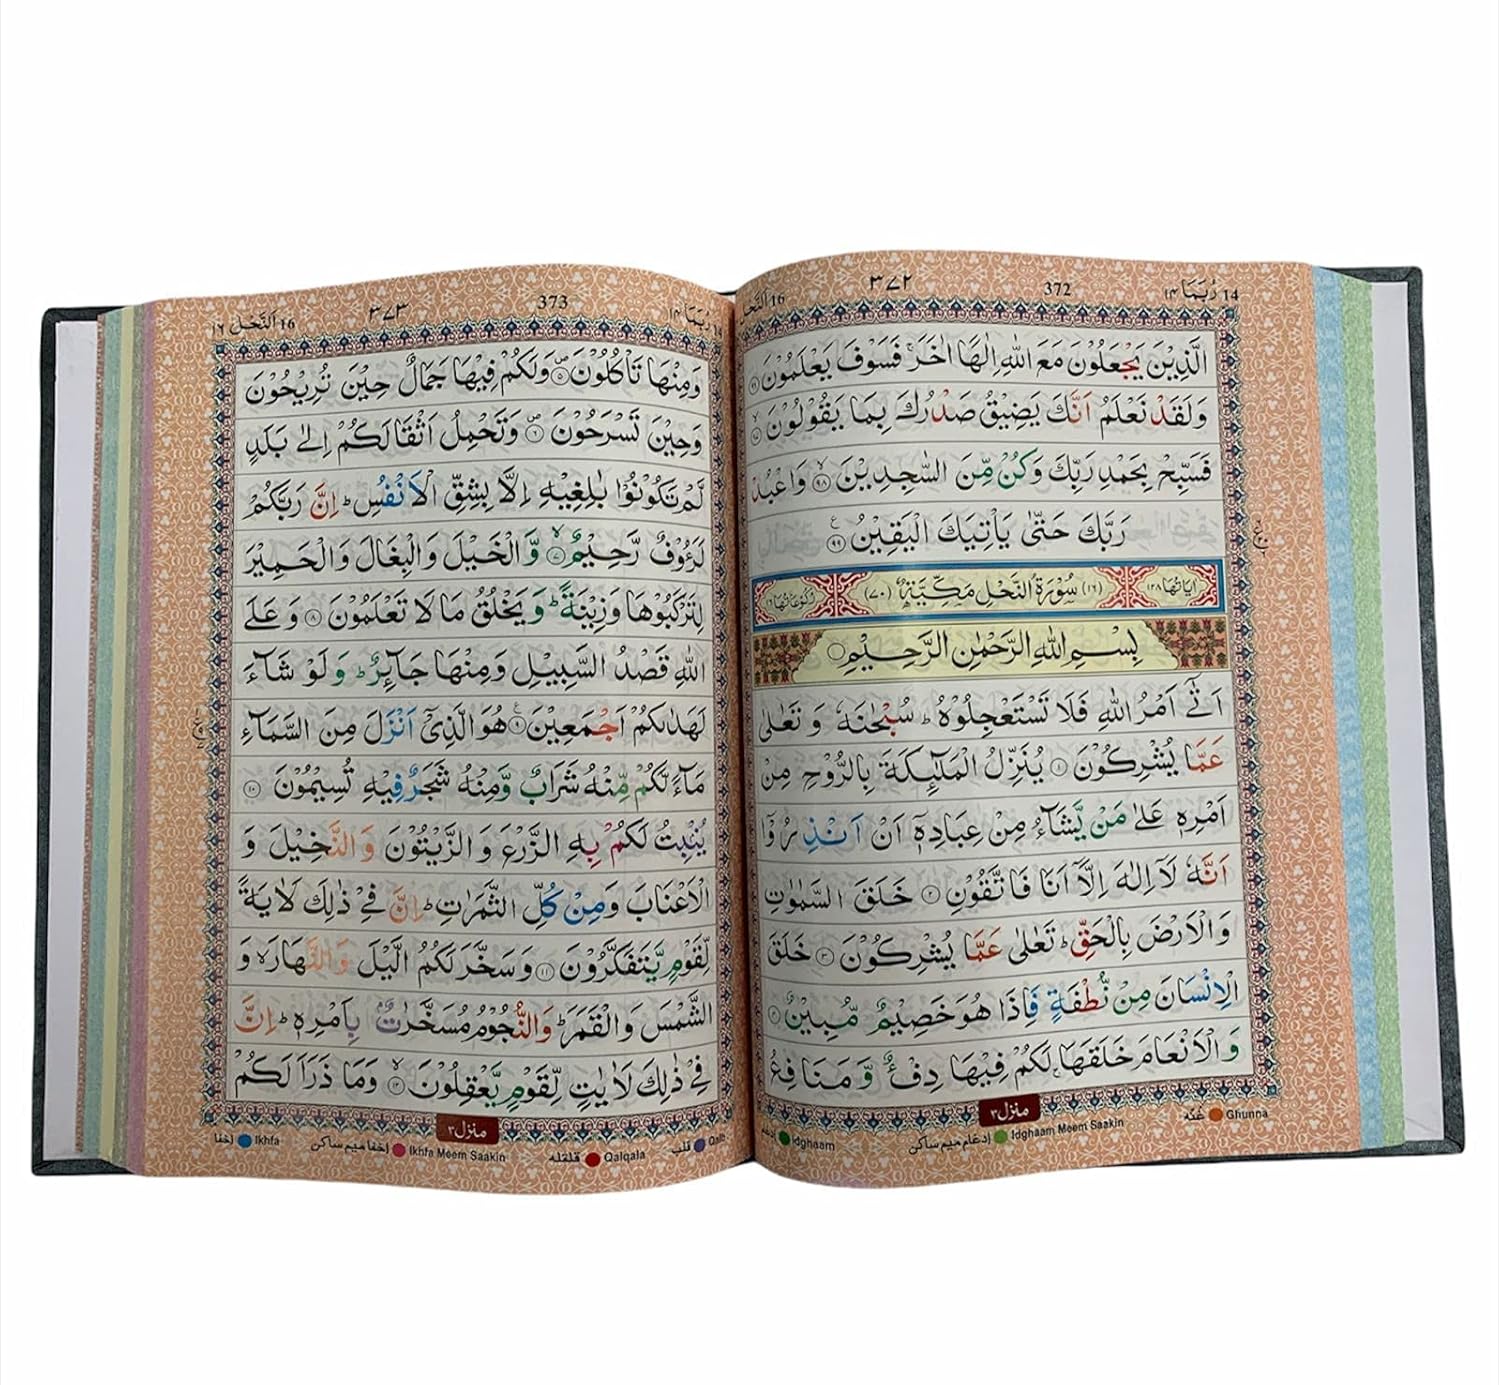 14 رُبَمَا ١٤ 372 ٣٧٢ 16 اَلنَّحْل
الَّذِيْنَ يَجْعَلُوْنَ مَعَ اللّٰهِ اِلٰهًا اٰخَرَ ۚ فَسَوْفَ يَعْلَمُوْنَ ﴿٩٦﴾
وَلَقَدْ نَعْلَمُ اَنَّكَ يَضِيْقُ صَدْرُكَ بِمَا يَقُوْلُوْنَ ﴿٩٧﴾
فَسَبِّحْ بِحَمْدِ رَبِّكَ وَكُنْ مِّنَ السّٰجِدِيْنَ ﴿٩٨﴾ وَاعْبُدْ
رَبَّكَ حَتّٰى يَاْتِيَكَ الْيَقِيْنُ ﴿٩٩﴾
اٰيَاتُهَا ١٢٨ (١٦) سُوْرَةُ النَّحْلِ مَكِّيَّةٌ (٧٠) رُكُوْعَاتُهَا ١٦
بِسْمِ اللّٰهِ الرَّحْمٰنِ الرَّحِيْمِ
اَتٰٓى اَمْرُ اللّٰهِ فَلَا تَسْتَعْجِلُوْهُ ؕ سُبْحٰنَهٗ وَ تَعٰلٰى
عَمَّا يُشْرِكُوْنَ ﴿١﴾ يُنَزِّلُ الْمَلٰٓئِكَةَ بِالرُّوْحِ مِنْ
اَمْرِهٖ عَلٰى مَنْ يَّشَآءُ مِنْ عِبَادِهٖۤ اَنْ اَنْذِرُوْۤا
اَنَّهٗ لَاۤ اِلٰهَ اِلَّاۤ اَنَا فَاتَّقُوْنِ ﴿٢﴾ خَلَقَ السَّمٰوٰتِ
وَالْاَرْضَ بِالْحَقِّ ؕ تَعٰلٰى عَمَّا يُشْرِكُوْنَ ﴿٣﴾ خَلَقَ
الْاِنْسَانَ مِنْ نُّطْفَةٍ فَاِذَا هُوَ خَصِيْمٌ مُّبِيْنٌ ﴿٤﴾
وَالْاَنْعَامَ خَلَقَهَا ۚ لَكُمْ فِيْهَا دِفْءٌ وَّ مَنَافِعُ
منزل ٣
غُنّه Ghunna إدغام ميم ساكن Idghaam Meem Saakin Idghaam
رُبَمَا ١٤ 373 ٣٧٣ 16 اَلنَّحْل ١٦
وَمِنْهَا تَاْكُلُوْنَ ﴿٥﴾ وَلَكُمْ فِيْهَا جَمَالٌ حِيْنَ تُرِيْحُوْنَ
وَحِيْنَ تَسْرَحُوْنَ ﴿٦﴾ وَتَحْمِلُ اَثْقَالَكُمْ اِلٰى بَلَدٍ
لَّمْ تَكُوْنُوْا بٰلِغِيْهِ اِلَّا بِشِقِّ الْاَنْفُسِ ؕ اِنَّ رَبَّكُمْ
لَرَءُوْفٌ رَّحِيْمٌ ﴿٧﴾ وَّالْخَيْلَ وَالْبِغَالَ وَالْحَمِيْرَ
لِتَرْكَبُوْهَا وَزِيْنَةً ؕ وَيَخْلُقُ مَا لَا تَعْلَمُوْنَ ﴿٨﴾ وَعَلَى
اللّٰهِ قَصْدُ السَّبِيْلِ وَمِنْهَا جَآئِرٌ ؕ وَلَوْ شَآءَ
لَهَدٰىكُمْ اَجْمَعِيْنَ ﴿٩﴾ هُوَ الَّذِيْۤ اَنْزَلَ مِنَ السَّمَآءِ
مَآءً لَّكُمْ مِّنْهُ شَرَابٌ وَّمِنْهُ شَجَرٌ فِيْهِ تُسِيْمُوْنَ ﴿١٠﴾
يُنْۢبِتُ لَكُمْ بِهِ الزَّرْعَ وَالزَّيْتُوْنَ وَالنَّخِيْلَ وَ
الْاَعْنَابَ وَمِنْ كُلِّ الثَّمَرٰتِ ؕ اِنَّ فِيْ ذٰلِكَ لَاٰيَةً
لِّقَوْمٍ يَّتَفَكَّرُوْنَ ﴿١١﴾ وَسَخَّرَ لَكُمُ الَّيْلَ وَالنَّهَارَ ۙ وَ
الشَّمْسَ وَالْقَمَرَ ؕ وَالنُّجُوْمُ مُسَخَّرٰتٌۢ بِاَمْرِهٖ ؕ اِنَّ
فِيْ ذٰلِكَ لَاٰيٰتٍ لِّقَوْمٍ يَّعْقِلُوْنَ ﴿١٢﴾ وَمَا ذَرَاَ لَكُمْ
منزل ٣
قلب قلقله Qalqala إخفا ميم ساكن Ikhfa Meem Saakin إخفا Ikhfa